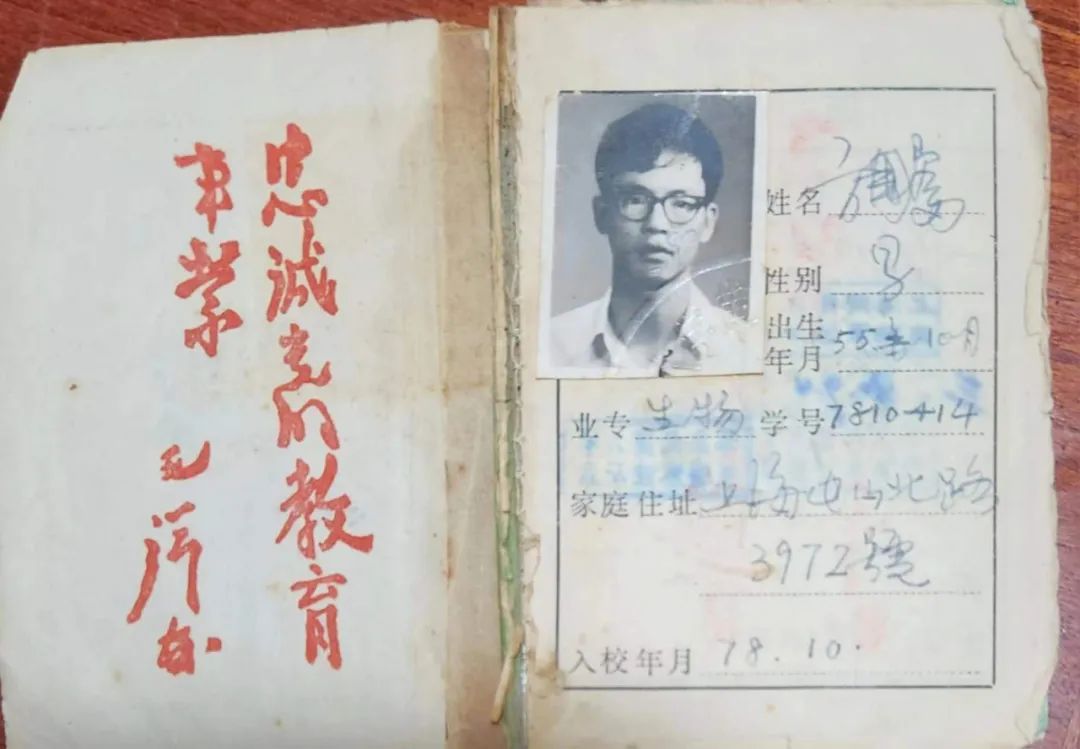 忠诚党的教育
事業
毛泽东
姓名
性别 男
出生
年月 55年10月
业专 生物 学号 7810414
家庭住址 上海中山北路
3972號
入校年月 78.10.